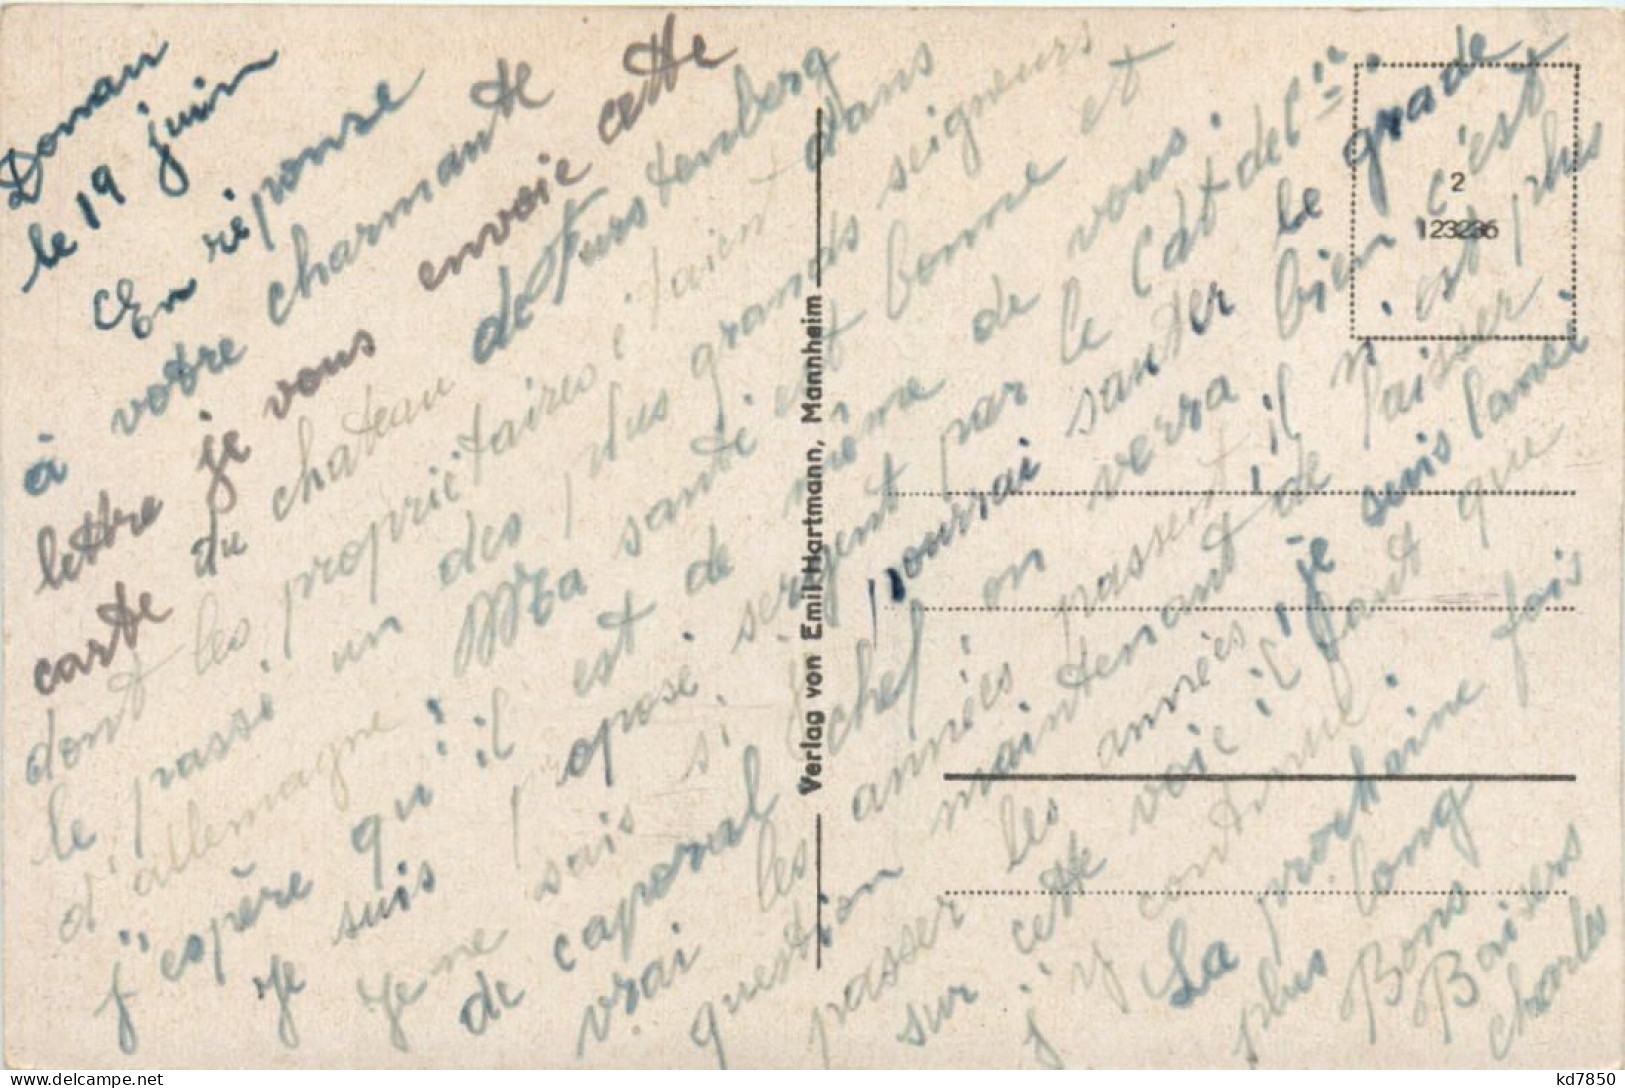 Donau
le 19 juin
En réponse
à votre charmante
lettre je vous envoie cette
carte du chateau de Furstenberg
dont les propriétaires étaient dans
le passé un des plus grands seigneurs
d'allemagne! Ma santé est bonne et
j'espère qu'il est de même de vous.
Je suis proposé sergent par le Cdt de Cie
Je ne sais si je pourrai sauter le grade
de caporal chef, on verra bien c'est
vrai les années passent il n'est plus
question maintenant de laisser
passer les années, je suis lancé
sur cette voie il faut que
j'y continue.
La prochaine fois
plus long
Bons Baisers
charles
Verlag von Emil Hartmann, Mannheim
2
123236
kd7850